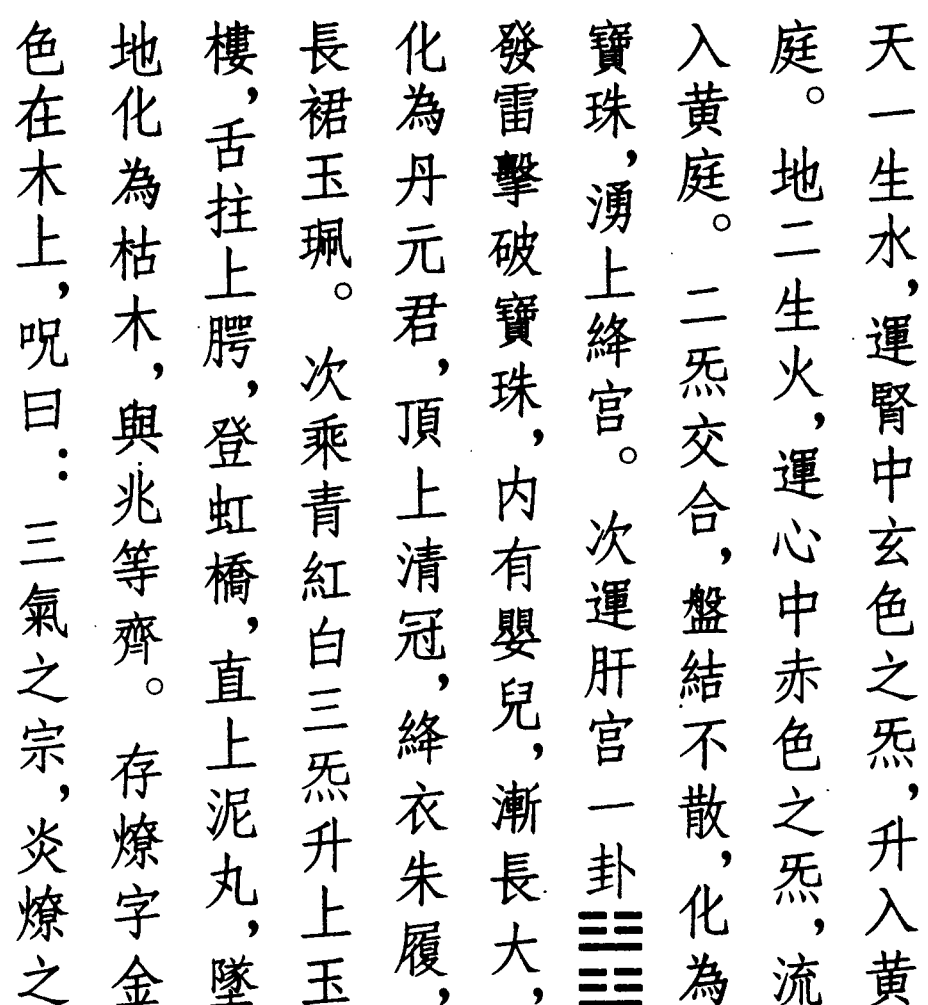 天一生水，運腎中玄色之炁，升入黄
庭。地二生火，運心中赤色之炁，流
入黄庭。二炁交合，盤結不散，化為
寶珠，湧上絳宫。次運肝宫一卦䷲
發雷擊破寶珠，内有嬰兒，漸長大，
化為丹元君，頂上清冠，絳衣朱履，
長裙玉珮。次乘青紅白三炁升上玉
樓，舌拄上腭，登虹橋，直上泥丸，墜
地化為枯木，與兆等齊。存燎字金
色在木上，呪曰：三氣之宗，炎燎之